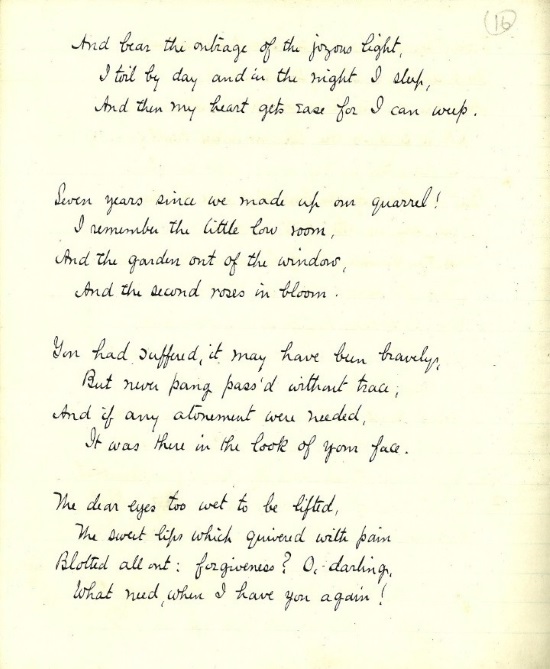 16
And bear the outrage of the joyous light,
I toil by day and in the night I sleep,
And then my heart gets ease for I can weep.
Seven years since we made up our quarrel!
I remember the little low room,
And the garden out of the window,
And the second roses in bloom.
You had suffered, it may have been bravely,
But never pang pass'd without trace;
And if any atonement were needed,
It was there in the look of your face.
The dear eyes too wet to be lifted,
The sweet lips which quivered with pain
Blotted all out: forgiveness? O, darling,
What need, when I have you again!